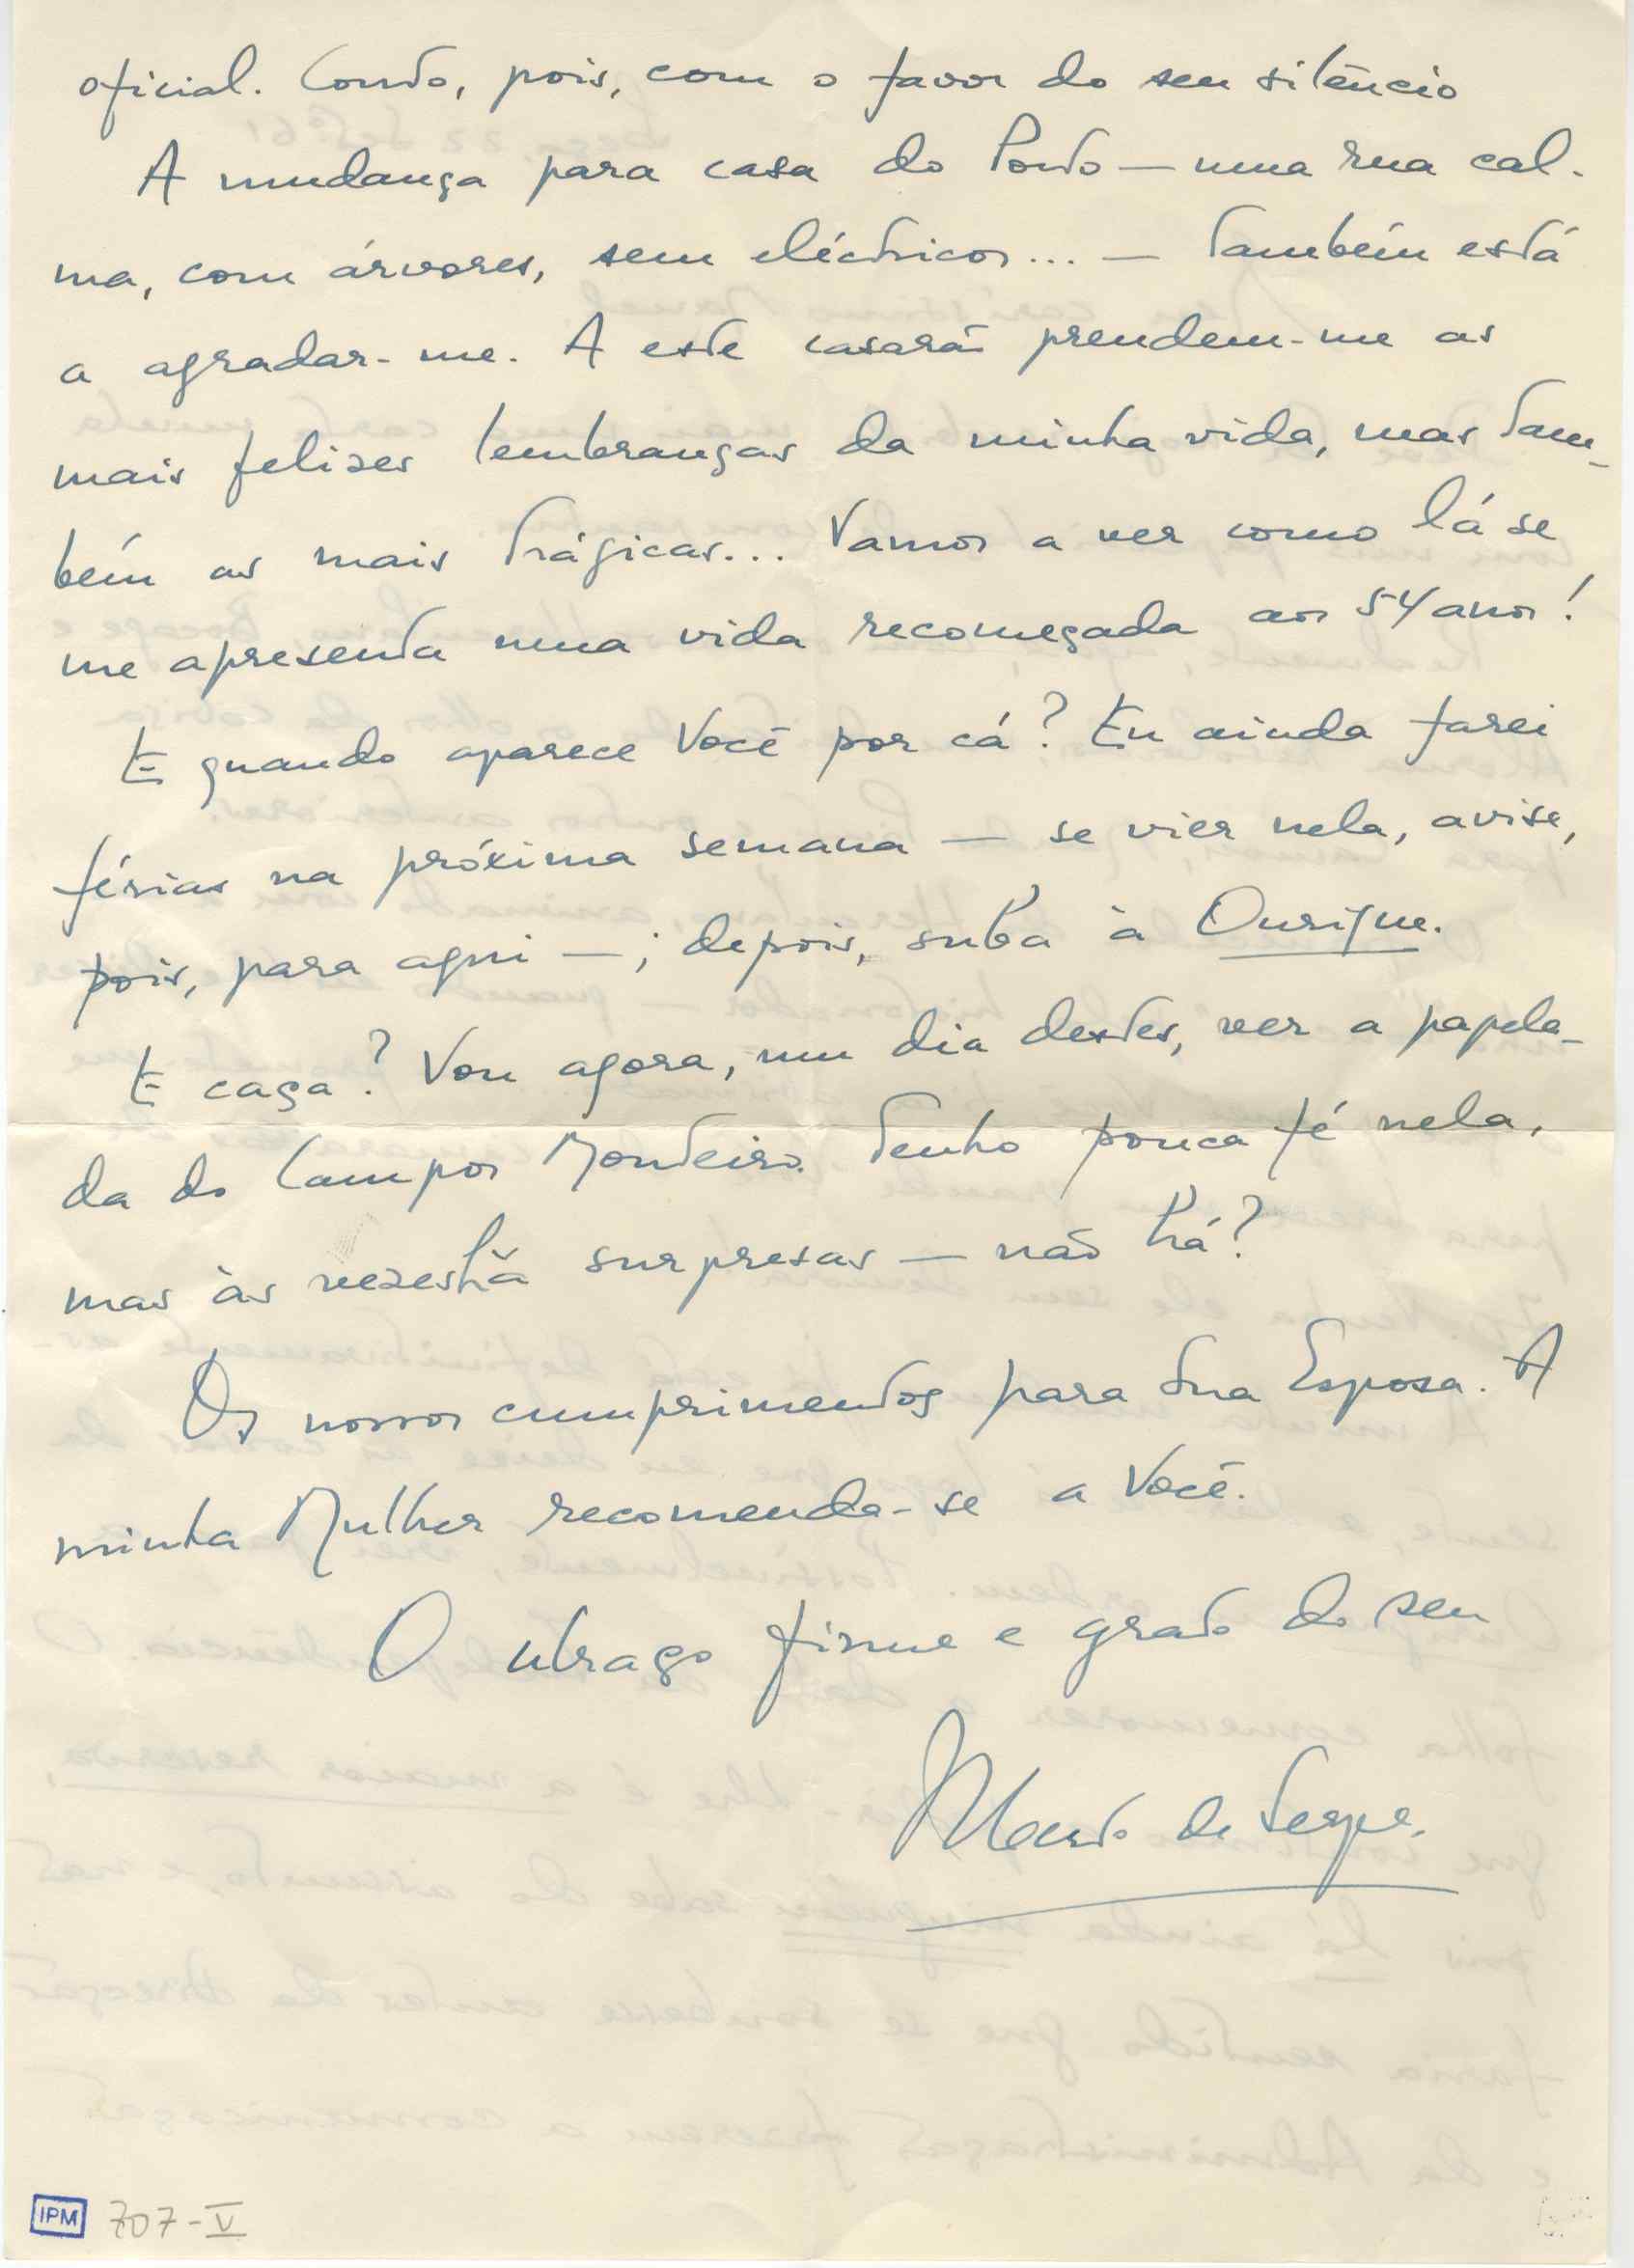 oficial. Conto, pois, com o favor do seu silêncio
A mudança para casa do Porto — numa rua cal-
ma, com árvores, sem eléctricos... — também está
a agradar-me. A este casarão prendem-me as
mais felizes lembranças da minha vida, mas tam-
bém as mais trágicas... Vamos a ver como lá se
me apresenta uma vida recomeçada aos 54 anos!
E quando aparece Você por cá? Eu ainda farei
férias na próxima semana — se vier nela, avise,
pois, para aqui —; depois, suba à Ourique.
E caça? Vou agora, um dia destes, ver a papela-
da do Campos Monteiro. Tenho pouca fé nela,
mas às vezes há surpresas — não há?
Os nossos cumprimentos para Sua Esposa. A
minha Mulher recomenda-se a Você.
O abraço firme e grato do seu
de Serpa.
IPM 707-V